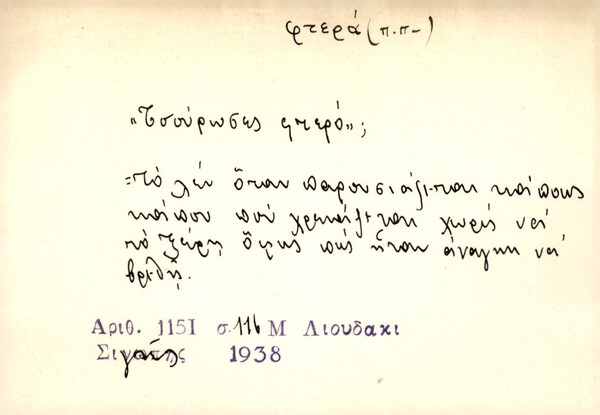 φτερά (π.π-)
«Τσούρωσες φτερό»;
=Τὸ λέν ὅταν παρουσιάζεται κάποιος
κάπου πού χρειάζεται χωρίς νά
τό ξέρῃ ὅμως πώς ἦταν ἀνάγκη νά
βρεθῇ.
Αριθ. 1151 σ. 116 Μ Λιουδακι
1938